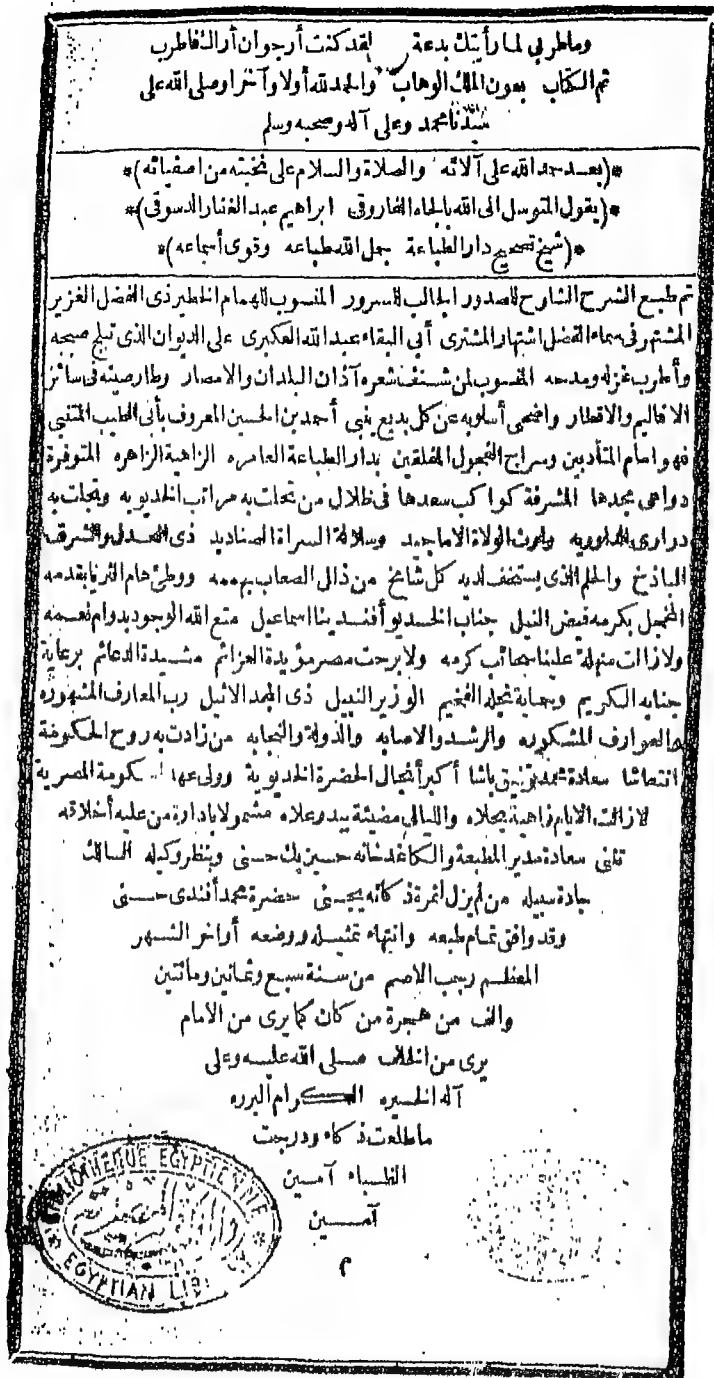 وما طربي لما رأيتك بدعة لقد كنت أرجو أن أراك فاطرب
تم الكتاب بعون الملك الوهاب والحمد لله أولا وآخرا وصلى الله على
سيدنا محمد وعلى آله وصحبه وسلم
*(بعد حمد الله على آلائه والصلاة والسلام على نخبته من اصفيائه)*
*(يقول المتوسل الى الله بالجاه الفاروقي ابراهيم عبد الغفار الدسوقي)*
*(شيخ تصحيح دار الطباعة جمل الله طباعه وقوى أسماعه)*
تم طبع الشرح الشارح للصدور الجالب للسرور المنسوب للهمام الخطير ذى الفضل الغزير
المشتهر فى سماء الفضل اشتهار المشترى أبي البقاء عبد الله العكبرى على الديوان الذى تبلج صبحه
وأطرب غزله ومدحه المنسوب لمن شنف شعره آذان البلدان والامصار وطار صيته فى سائر
الاقاليم والاقطار واضحى أسلوبه عن كل بديع ينبي أحمد بن الحسين المعروف بأبى الطيب المتنبي
فهو امام المتأدبين وسراج الفحول المفلقين بدار الطباعة العامره الزاهية الزاهره المتوفرة
دواعى مجدها المشرقة كواكب سعدها فى ظلال من تحلت به مراتب الخديويه وتجلت به
درارى الداوريه وارث الولاة الاماجد وسلالة السراة الصناديد ذى العدل والشرف
الباذخ والحلم الذى يستخف لديه كل شامخ من ذلل الصعاب بهممه ووطئ هام الثريا بقدمه
المخجل بكرمه فيض النيل جناب الخديو أفندينا اسماعيل متع الله الوجود بدوام نعمه
ولا زالت منهلة علينا سحائب كرمه ولا برحت مصر مؤيدة العزائم مشيدة الدعائم برعاية
جنابه الكريم وبحماية نجله الفخيم الوزير النبيل ذى المجد الاثيل رب المعارف المشهوره
والعوارف المشكوره والرشد والاصابه والدولة والنجابه من زادت به روح الحكومة
انتعاشا سعادة محمد توفيق باشا أكبر أنجال الحضرة الخديوية وولى عهد الحكومة المصرية
لا زالت الايام زاهية بحلاه والليالى مضيئة ببدر علاه مشمولا بادارة من عليه أخلاقه
تثنى سعادة مدير المطبعة والكاغد خانه حسين بك حسنى وبنظر وكيله السالك
جادة سبيله من لم يزل ثمرة ذكائه يجتنى حضرة محمد أفندى حسنى
وقد وافق تمام طبعه وانتهاء تمثيله ووضعه أواخر الشهر
المعظم رجب الاصم من سنة سبع وثمانين ومائتين
والف من هجرة من كان كما يرى من الامام
يرى من الخلف صلى الله عليه وعلى
آله الخيره الكرام البرره
ما طلعت ذكاء ودرجت
الظباء آمين
آمين
م
BIBLIOTHEQUE EGYPTIENNE
EGYPTIAN